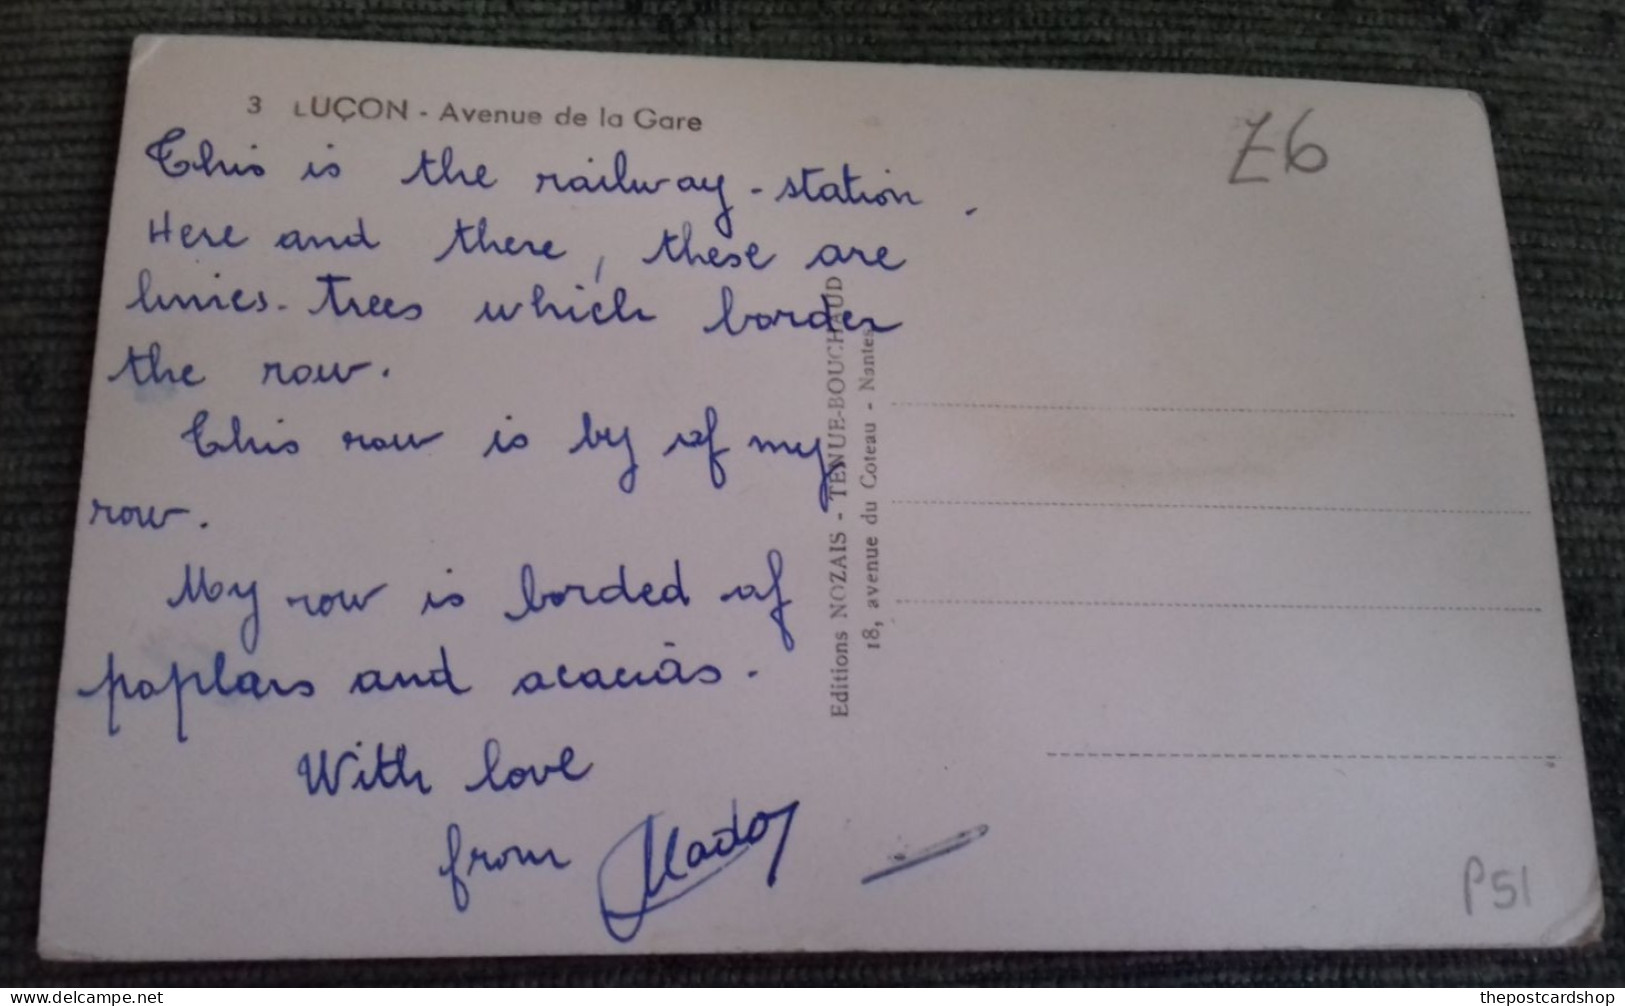 3 LUÇON - Avenue de la Gare
This is the railway-station.
Here and there, these are
limes-trees which border
the row.
This row is by of my
row.
My row is borded of
poplars and acacias.
With love
from
Editions NOZAIS - TENUE-BOUCHAUD
18, avenue du Coteau - Nantes
Z6
P51
thepostcardshop